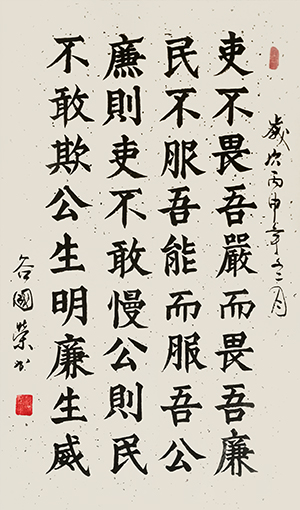 歲次丙申年
吏不畏吾嚴而畏吾廉
民不服吾能而服吾公
廉則吏不敢慢公則民
不敢欺公生明廉生威
谷國榮書